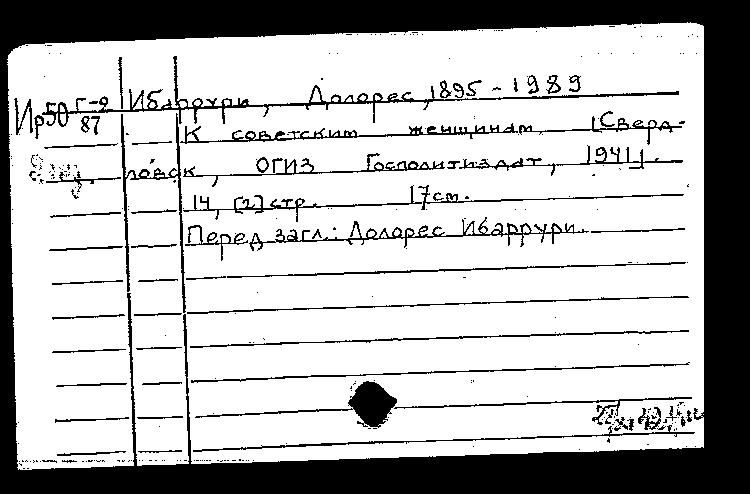 Ир50 Г-2/87 Ибаррури, Долорес, 1895-1989
К советским женщинам. [Сверд-
ловск, ОГИЗ Госполитиздат, 1941].
14, [2] стр. 17 см.
Перед загл.: Долорес Ибаррури.